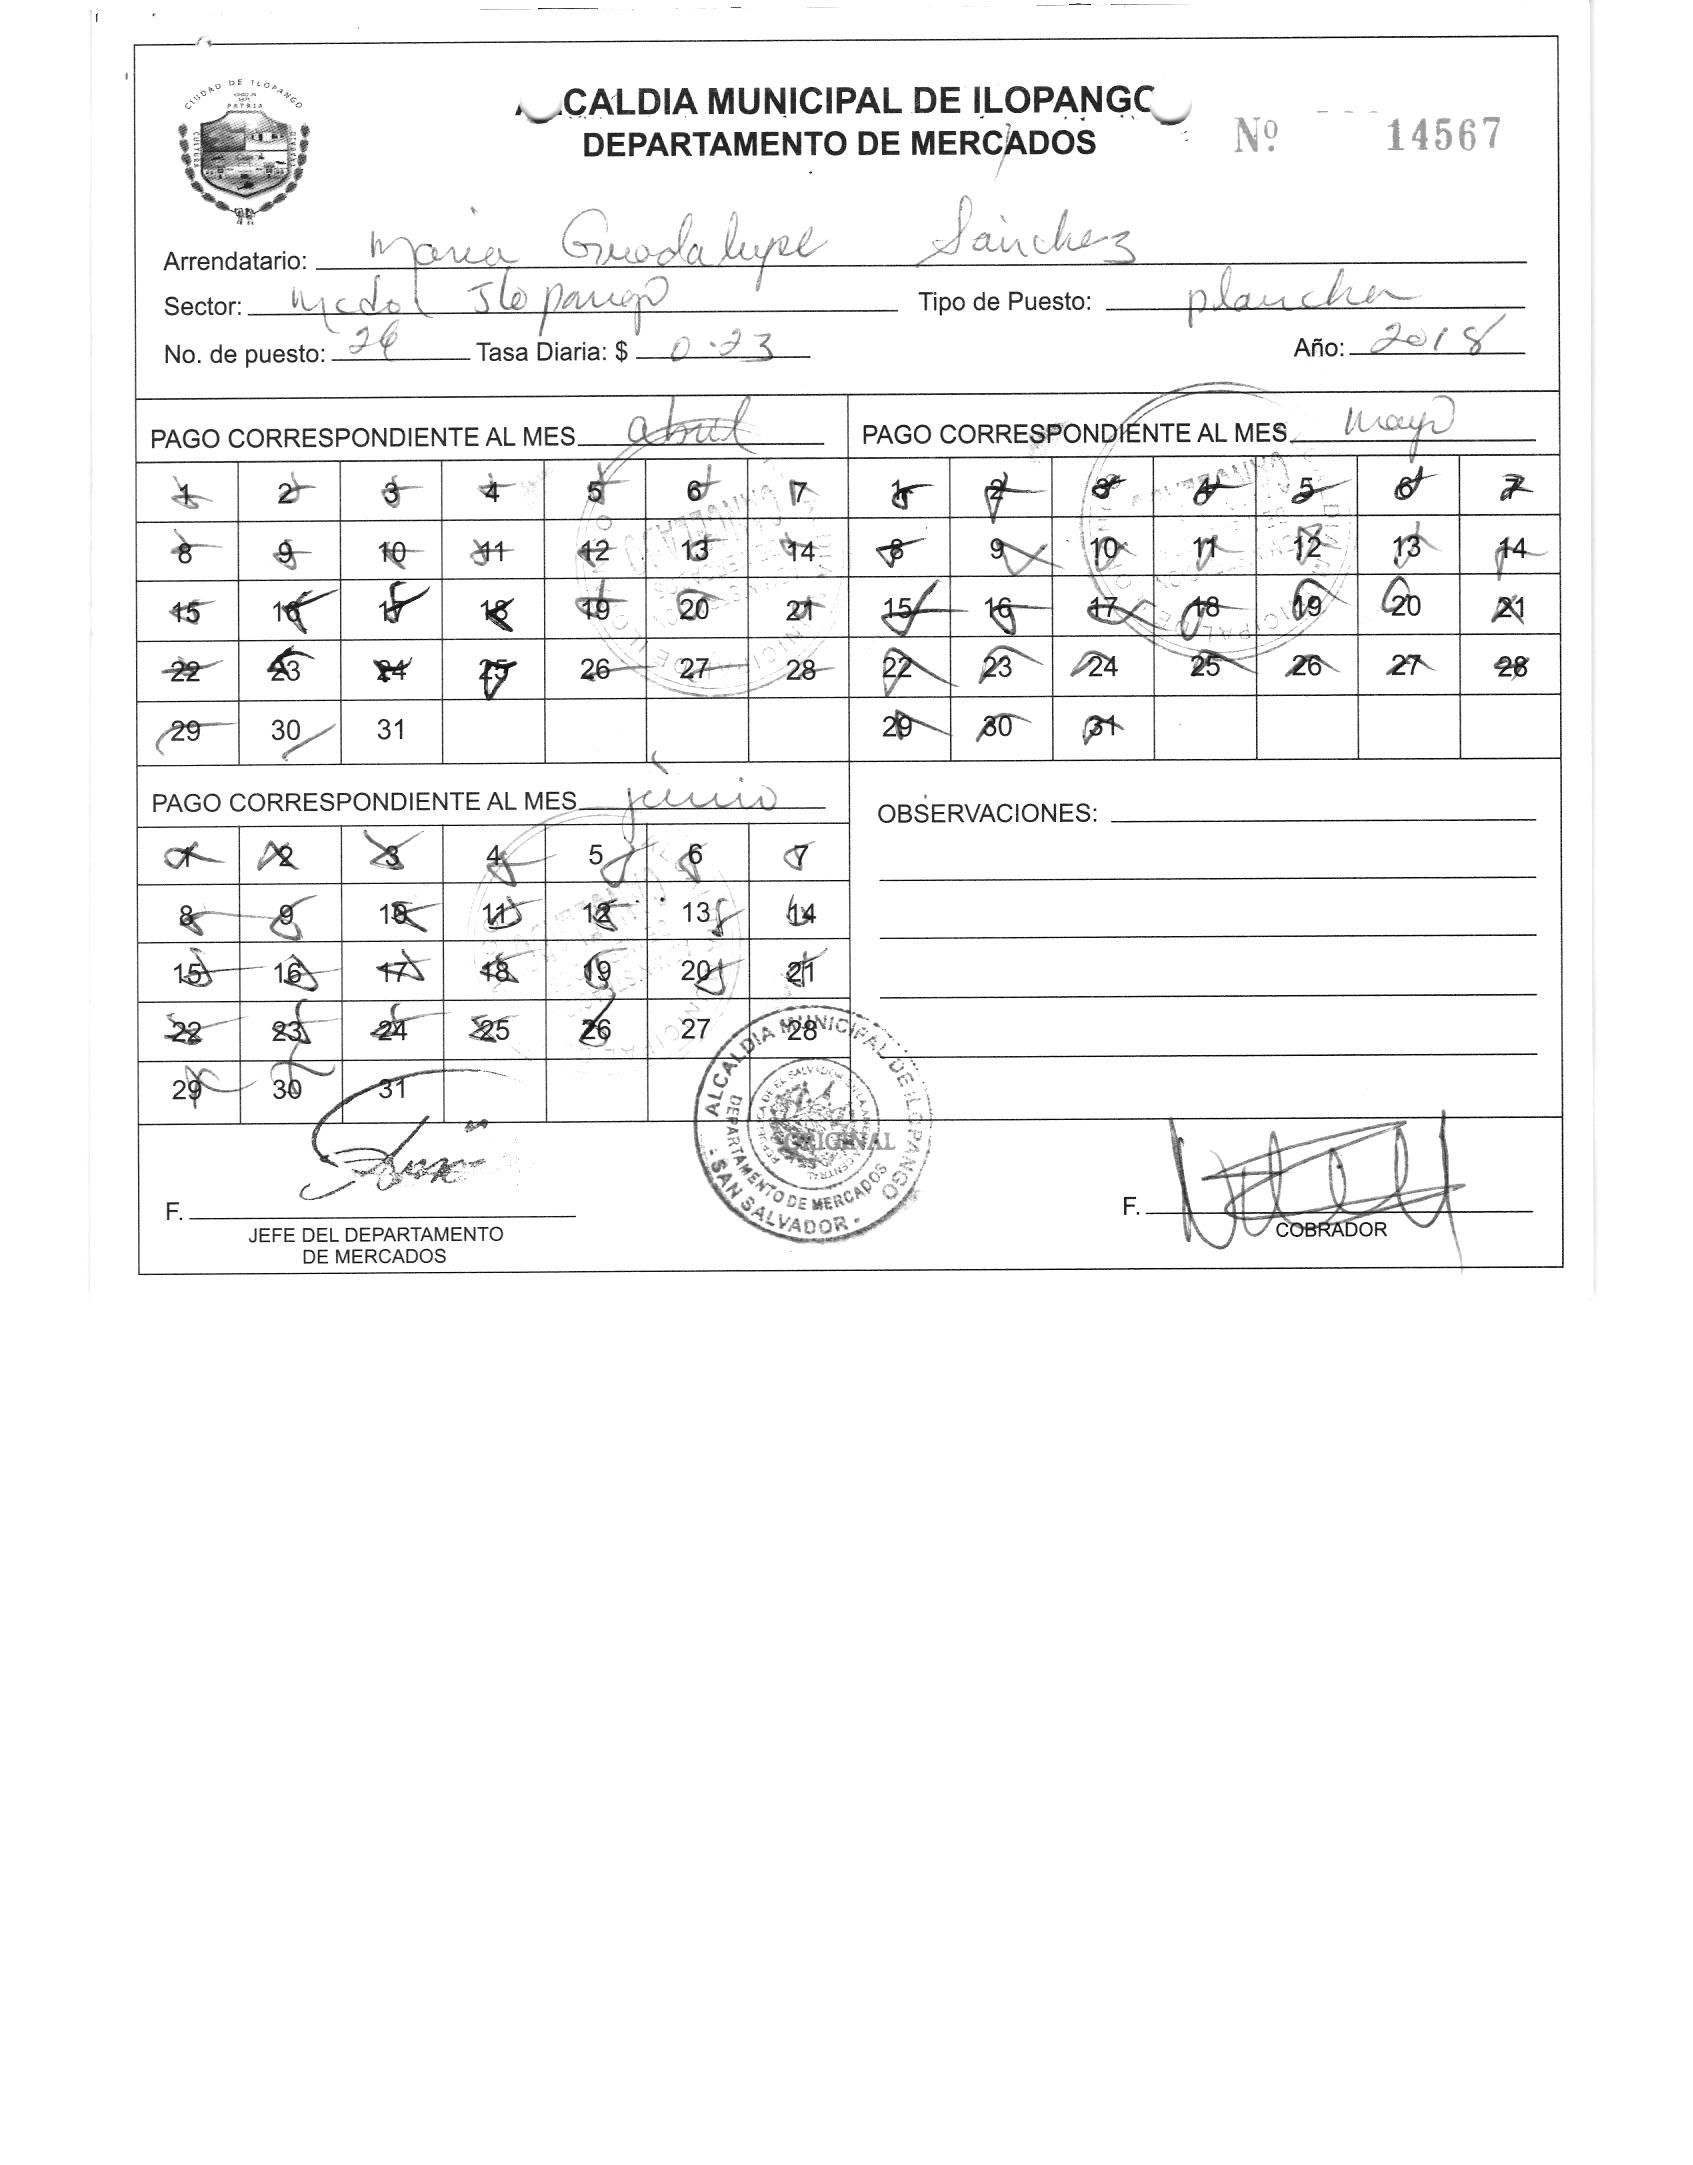 CIUDAD DE ILOPANGO
PATRIA
CULTURA
ALCALDIA MUNICIPAL DE ILOPANGO
DEPARTAMENTO DE MERCADOS
Nº 14567
Arrendatario: Maria Guadalupe Sánchez
Sector: Mcdo Ilopango Tipo de Puesto: plancha
No. de puesto: 26 Tasa Diaria: $ 0.23 Año: 2018
PAGO CORRESPONDIENTE AL MES abril
1 2 3 4 5 6 7
8 9 10 11 12 13 14
15 16 17 18 19 20 21
22 23 24 25 26 27 28
29 30 31
PAGO CORRESPONDIENTE AL MES. mayo
1 2 3 4 5 6 7
8 9 10 11 12 13 14
15 16 17 18 19 20 21
22 23 24 25 26 27 28
29 30 31
PAGO CORRESPONDIENTE AL MES junio
1 2 3 4 5 6 7
8 9 10 11 12 13 14
15 16 17 18 19 20 21
22 23 24 25 26 27 28
29 30 31
OBSERVACIONES:
ALCALDIA MUNICIPAL DE ILOPANGO
DEPARTAMENTO DE MERCADOS
SAN SALVADOR
ORIGINAL
F.
JEFE DEL DEPARTAMENTO
DE MERCADOS
F.
COBRADOR